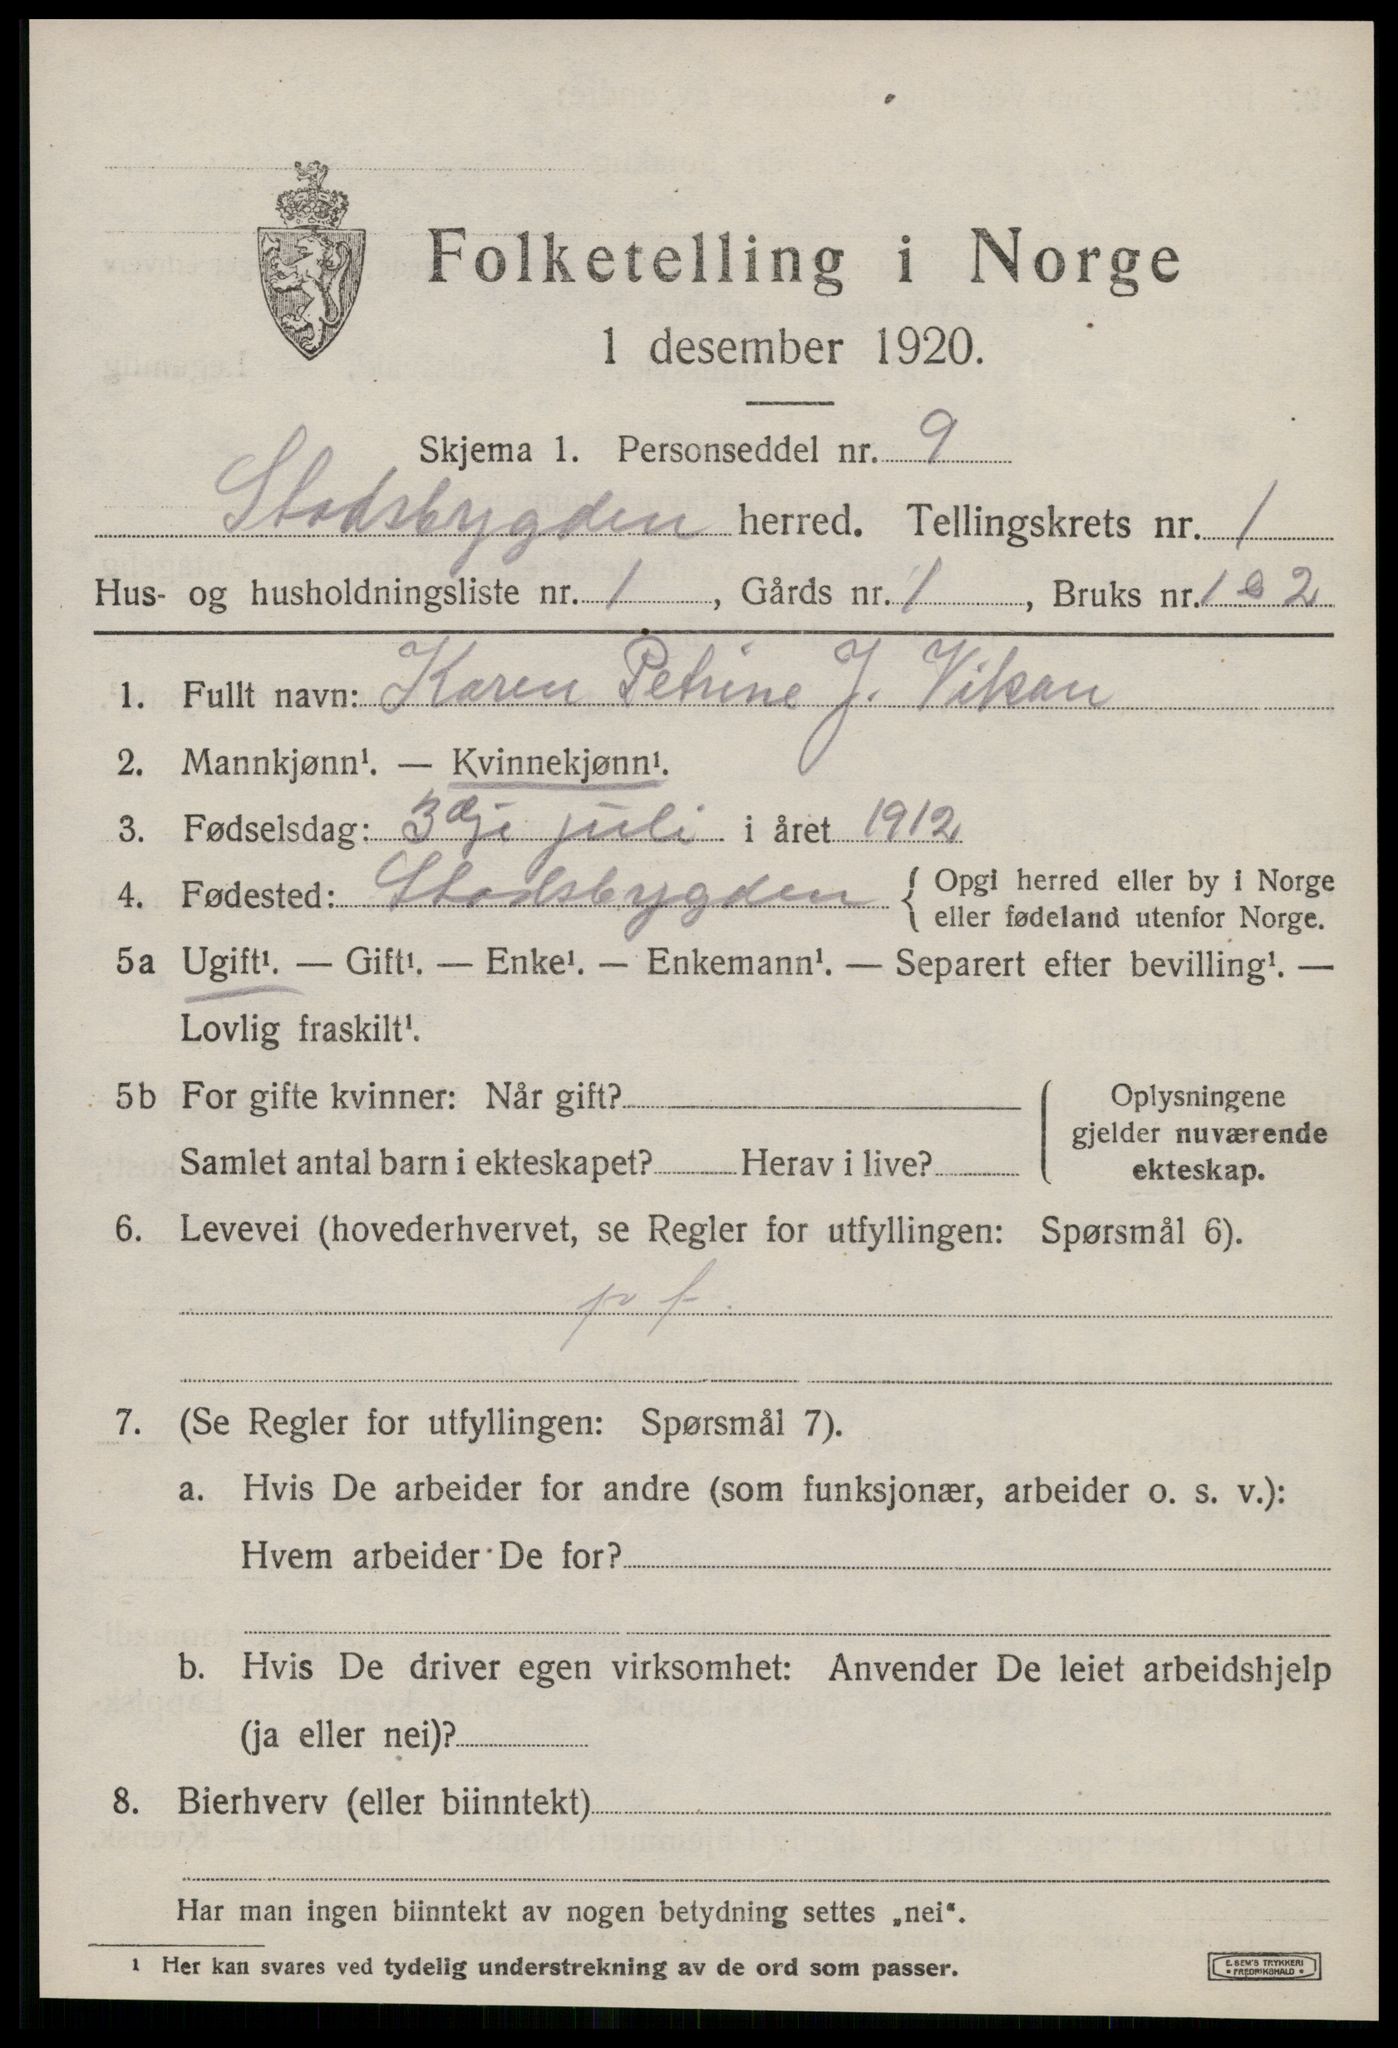 Folketelling i Norge
1 desember 1920.
Skjema 1. Personseddel nr. 9
Stodsbygden herred. Tellingskrets nr. 1
Hus- og husholdningsliste nr. 1, Gårds nr. 1, Bruks nr. 1 & 2
1. Fullt navn: Karen Petrine J. Vikan
2. Mannkjønn¹. — Kvinnekjønn¹.
3. Fødselsdag: 3dje juli i året 1912
4. Fødested: Stodsbygden { Opgi herred eller by i Norge
eller fødeland utenfor Norge.
5a Ugift¹. — Gift¹. — Enke¹. — Enkemann¹. — Separert efter bevilling¹. —
Lovlig fraskilt¹.
5b For gifte kvinner: Når gift?
Samlet antal barn i ekteskapet? Herav i live?
Oplysningene
gjelder nuværende
ekteskap.
6. Levevei (hovederhvervet, se Regler for utfyllingen: Spørsmål 6).
p f.
7. (Se Regler for utfyllingen: Spørsmål 7).
a. Hvis De arbeider for andre (som funksjonær, arbeider o. s. v.):
Hvem arbeider De for?
b. Hvis De driver egen virksomhet: Anvender De leiet arbeidshjelp
(ja eller nei)?
8. Bierhverv (eller biinntekt)
Har man ingen biinntekt av nogen betydning settes „nei“.
¹ Her kan svares ved tydelig understrekning av de ord som passer.
E. SEM'S TRYKKERI
• FREDRIKSHALD •